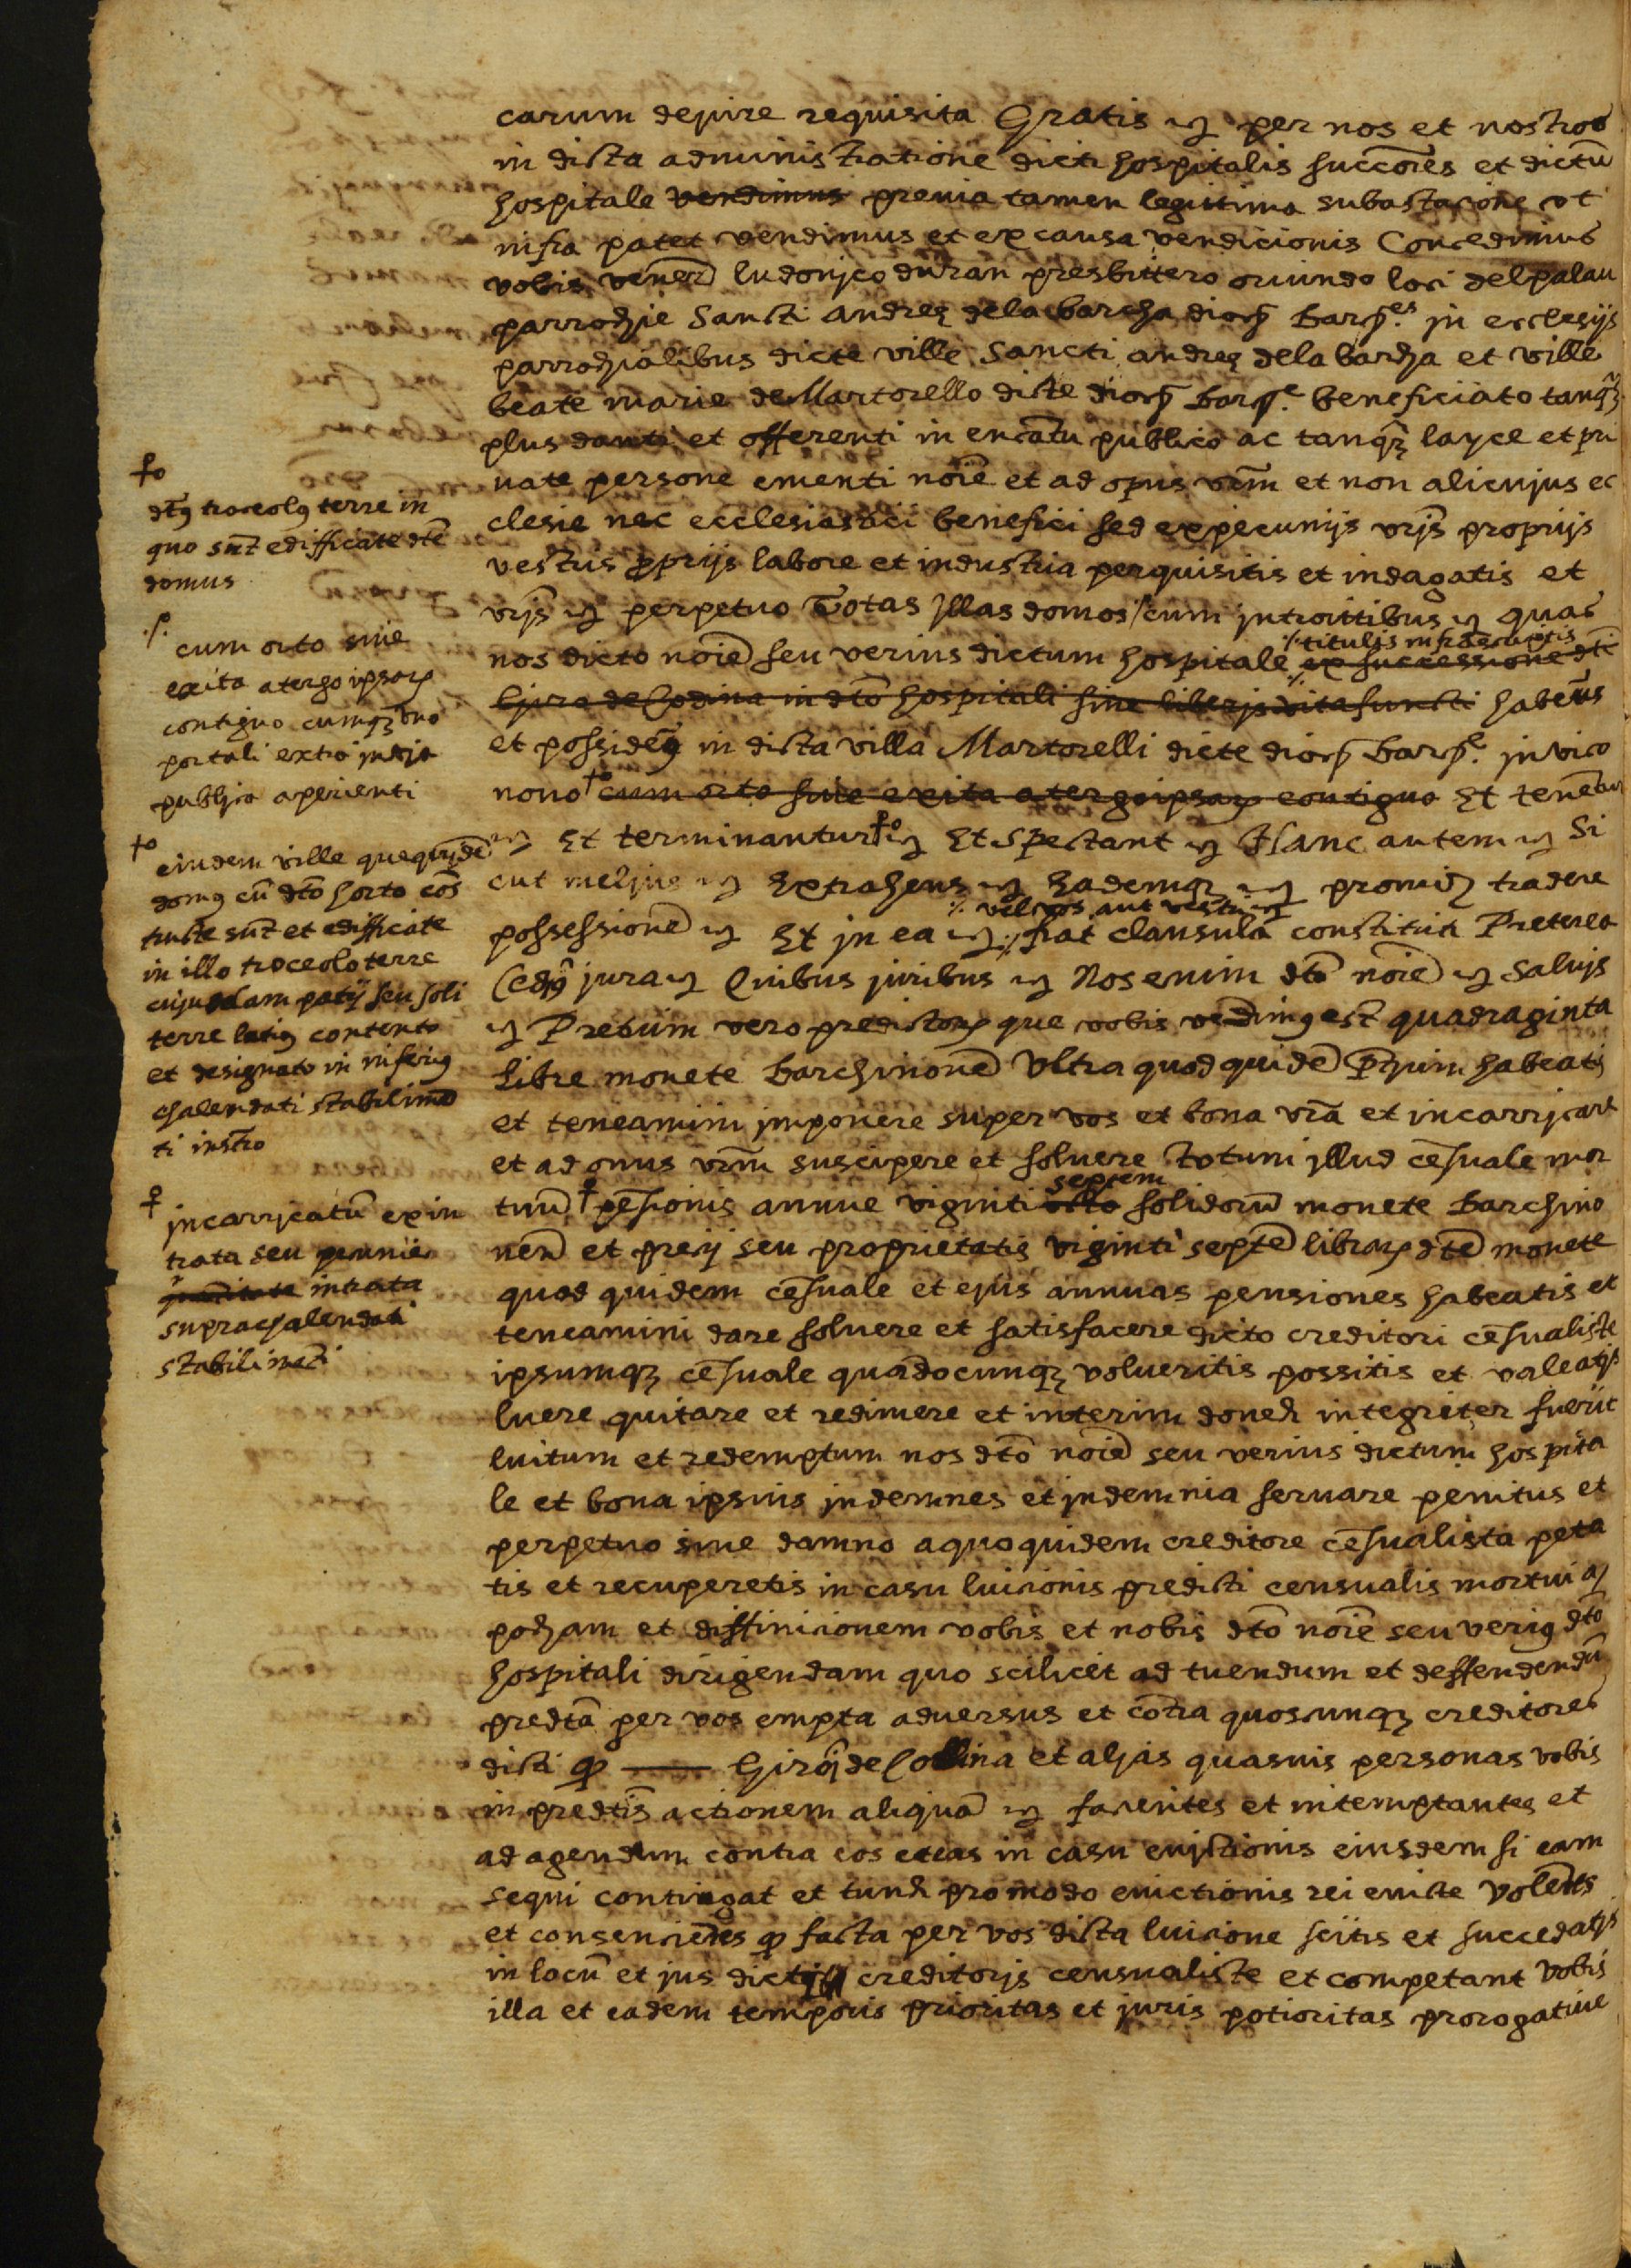 carum dejure requisita Gratis etc per nos et nostros
in dicta administratione dicti hospitalis succores et dictu
hospitale vendimus previa tamen legittima subastacione ut
infra patet vendimus et ex causa vendicionis Concedimus
vobis vener ludovico duran presbittero oriundo loci del palau
parrochie Sancti andree dela barcha dioc Barches in ecclesijs
parrochialibus dicte ville Sancti andree dela barcha et ville
beate marie de Martorello dicte dioc barche beneficiato tanqz
plus danti et offerenti in encatu publico ac tanqz layce et pri
vate persone ementi noie et ad opus vrm et non alicujus ec
clesie nec ecclesiastici benefici sed ex pecunijs vrjs proprijs
vestris proprijs labore et industria perquisitis et indagatis et
vrjs etc perpetuo Totas Illas domos cum introittibus etc quas
nos dicto noie seu verius dictum hospitale ex successione dti
titulis infrascriptis
habeus
et possideg in dicta villa Martorelli dicte dioc barche in vico
novo cum orto sive exita atergo ipsarz contiguo Et tenetur
etc Et terminantur etc Et spectant etc Hanc autem etc Si
cut melius etc Extrahens etc Eademqz etc promitt tradere
vel vos aut vestri etc
possessione etc Et in ea etc fiat clausula constituti Preterea
Cedig jura etc Quibus juribus etc Nos enim dto noie etc salvijs
etc Precium vero predictorz que vobis vendimg est quadraginta
libre monete barchinone Ultra quod quide precium habeatis
et teneamini imponere super vos et bona vra et incarricare
et ad onus vrm suscipere et solvere totum illud cesuale mor
septem
tuu pesionis annue viginti octo solidoru monete barchino
nen et precij seu proprietatis viginti septe librarz dte monete
quod quidem cesuale et ejus annuas pensiones habeatis et
teneamini dare solvere et satisfacere dicto creditori cesualiste
ipsumqz cesuale quadocunqz volueritis possitis et valeatis
luere quitare et redimere et interim donech integriter fuerit
luitum et redemptum nos dto noie seu verius dictum hospita
le et bona ipsius indemnes et indemnia servare penitus et
perpetuo sine damno aquoquidem creditore cesualista peta
tis et recuperetis in casu luicionis predicti censualis mortui a
pocham et diffinicionem vobis et nobis dto noie seu verig dto
hospitali dirigendam quo scilicet ad tuendum et deffendendu
predta per vos empta adversus et cotra quoscunqz creditores
dicti qo de Codina et aljas quasvis personas vobis
in predtis actionem aliqua etc facientes et intemptantes et
ad agendum contra eos etias in casu evictionis eiusdem si eam
sequi contingat et tunch pro modo evictionis rei evicte volentes
et consencietes qo facta per vos dicta luicione sitis et succedatis
in locu et jus creditoris censualiste et competant vobis
illa et eadem temporis prioritas et juris potioritas prorogative
dtg troceolg terre in
quo sut edifficate dte
domus
cum orto sive
exita atergo ipsarz
contiguo cumqz uno
portali extra
publica aperienti
eiusdem ville quequide
domg cu dto horto cos
tructe sut et edifficate
in illo troceolo terre
cujusdam patij seu soli
terre latig contento
et designato in inferig
chalendati stabilime
ti instro
incarricatu ex in
trata seu
intrata
suprachalendati
stabilimeti